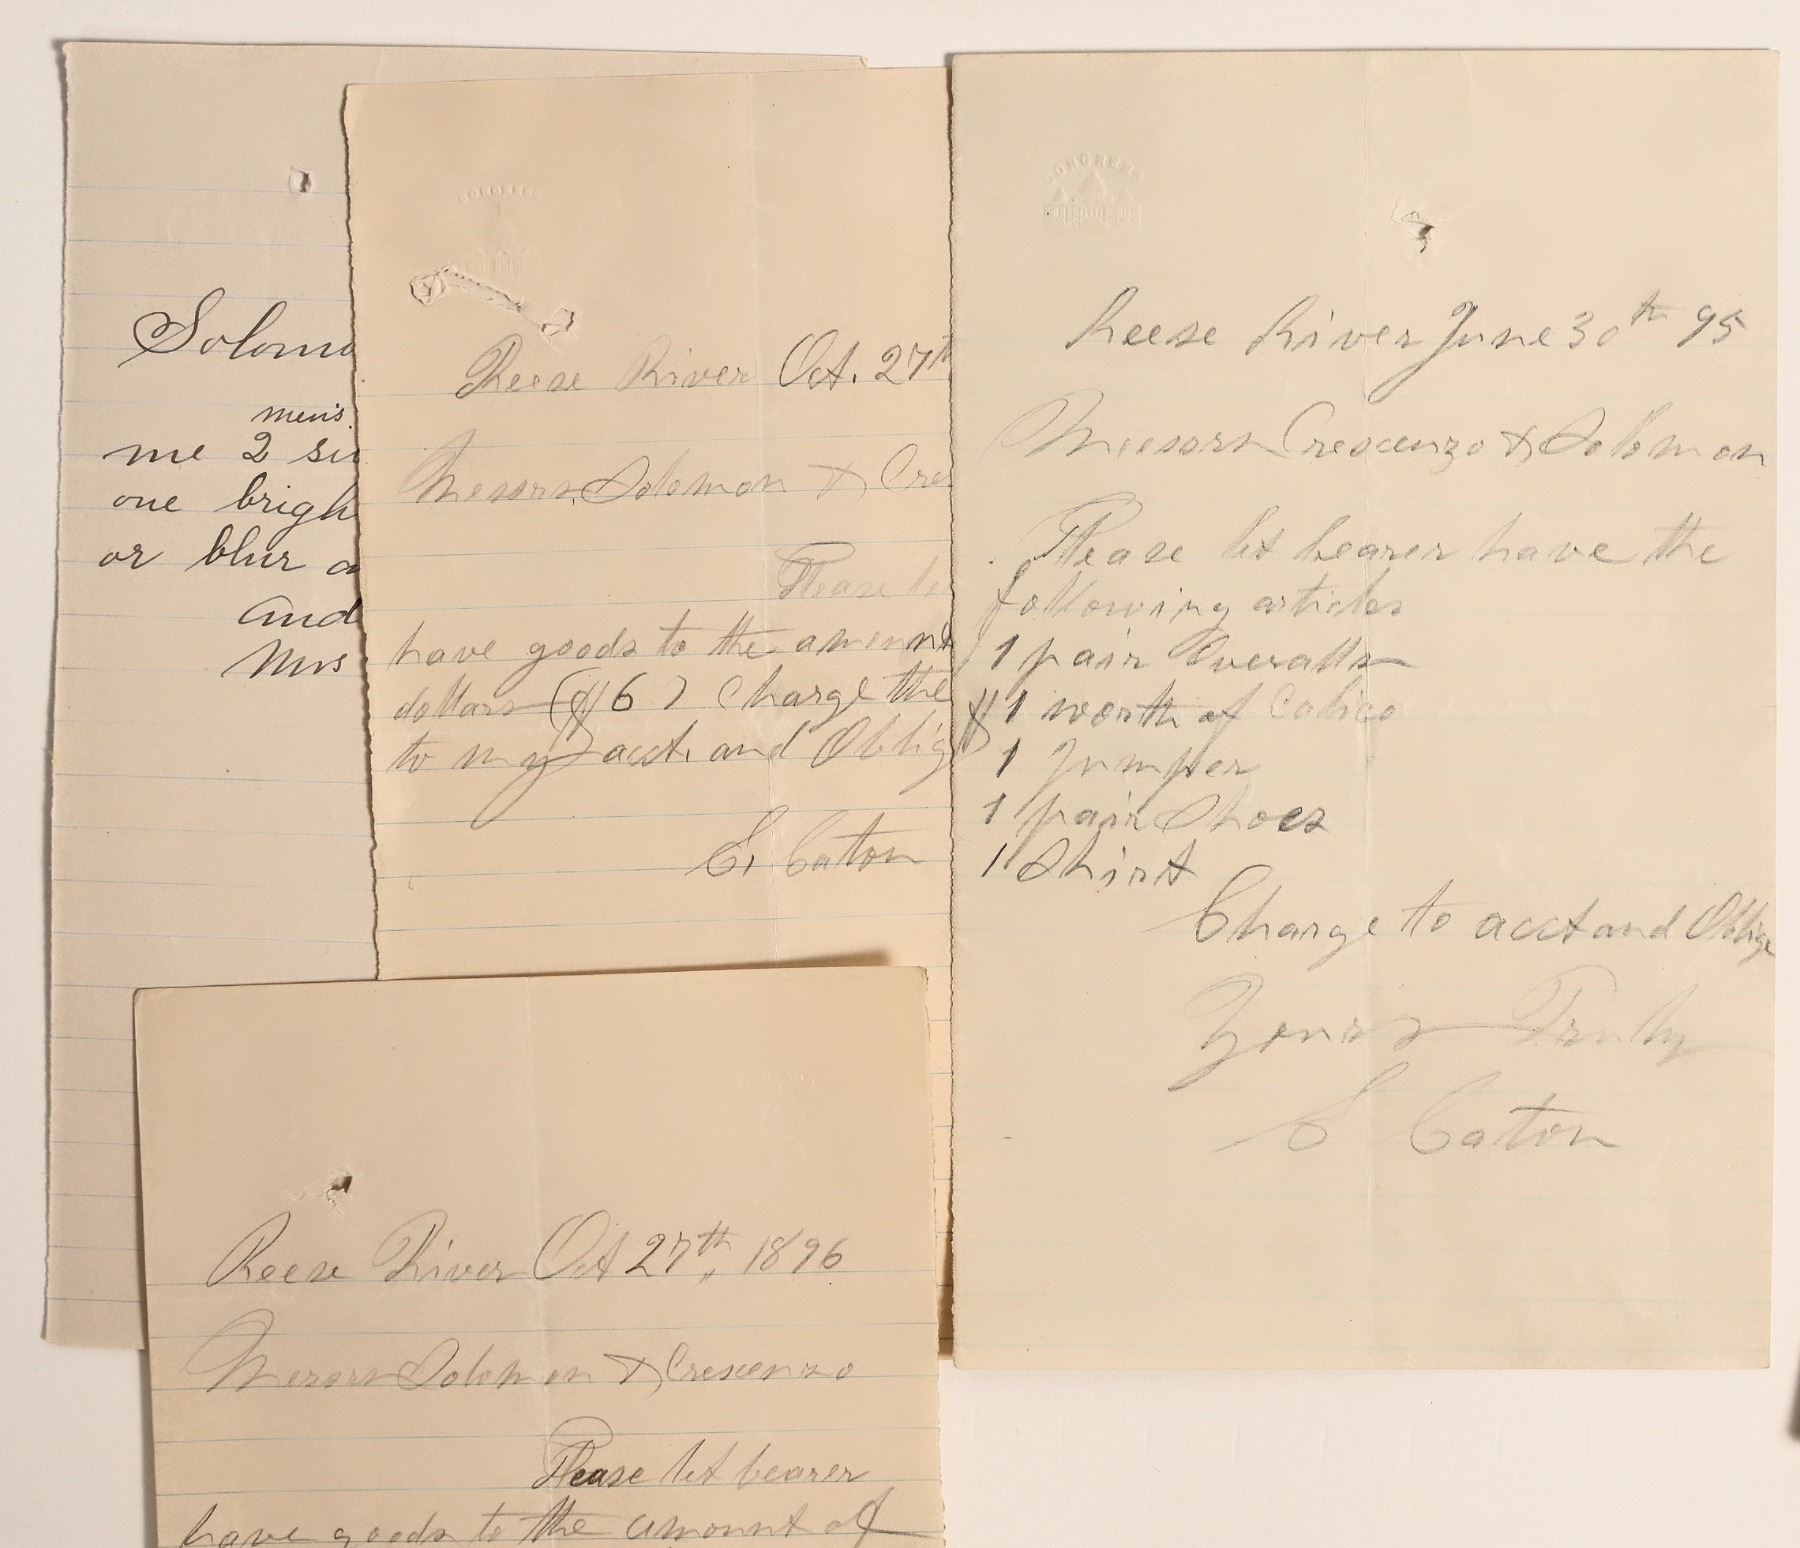 Solomo
men's
me 2 su
one brigh
or blur a
and
Mrs
Reese River Oct. 27th
Messrs Solomon & Cres
Please le
have goods to the amount
dollars ($6) Charge the
to my acct. and Oblig
E. Caton
CONGRESS
Reese River June 30th 95
Messrs Crescenzo & Solomon
Please let bearer have the
following articles
1 pair Overalls
$1 worth of Calico
1 Jumper
1 pair Shoes
1 Shirt
Charge to acct and Oblige
Yours Truly
E Caton
Reese River Oct 27th, 1896
Messrs Solomon & Crescenzo
Please let bearer
have goods to the amount of